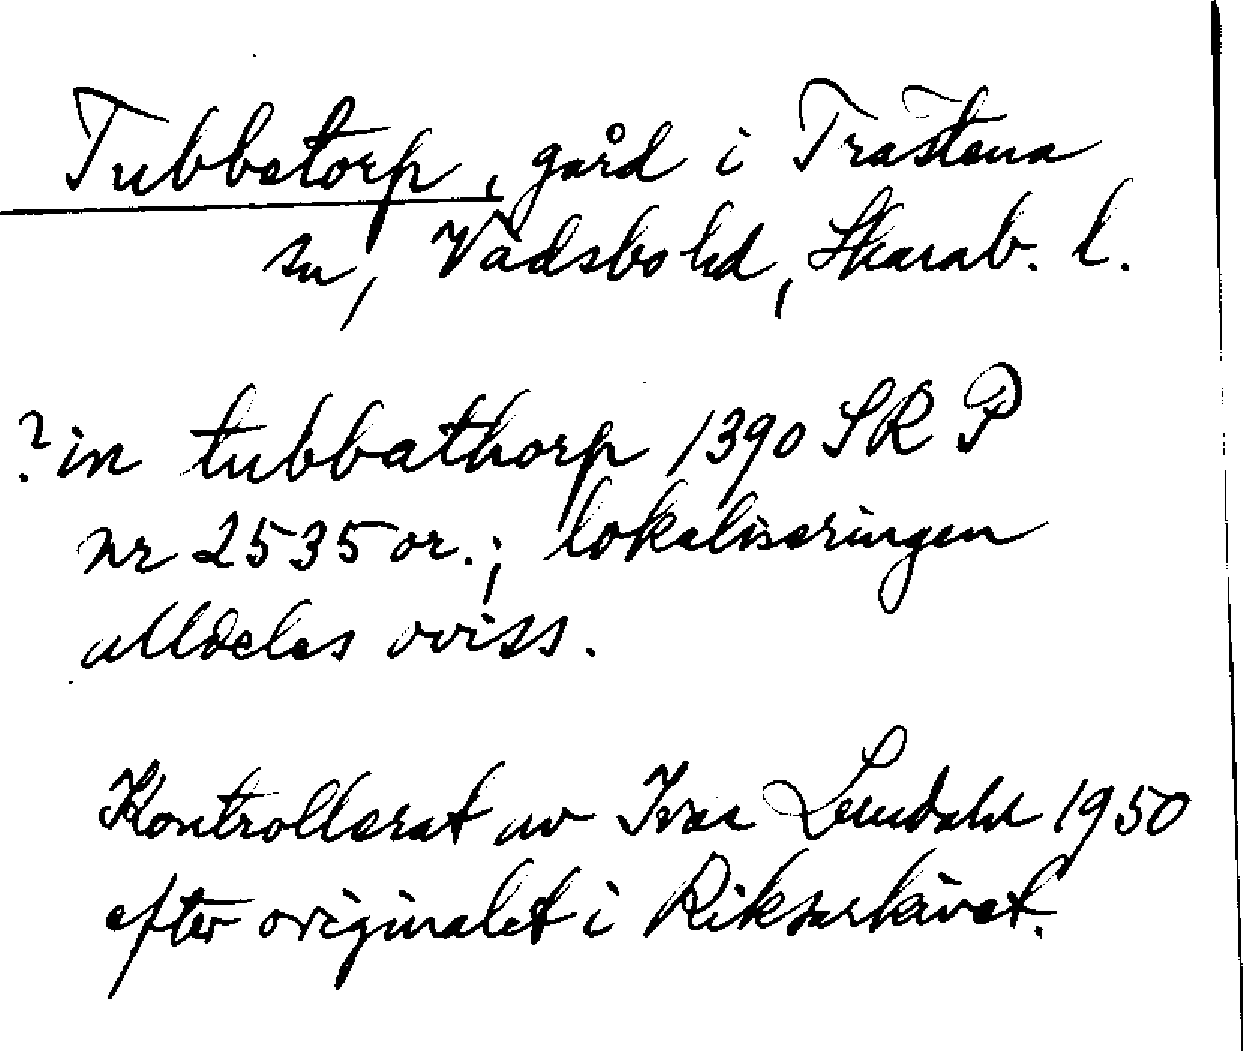 Tubbetorp, gård i Trästena
sn, Vadsbo hd, Skarab. l.
? in tubbathorp 1390 SRP
nr 2535 or.; lokaliseringen
alldeles oviss.
Kontrollerat av Ivar Lundahl 1950
efter originalet i Riksarkivet.